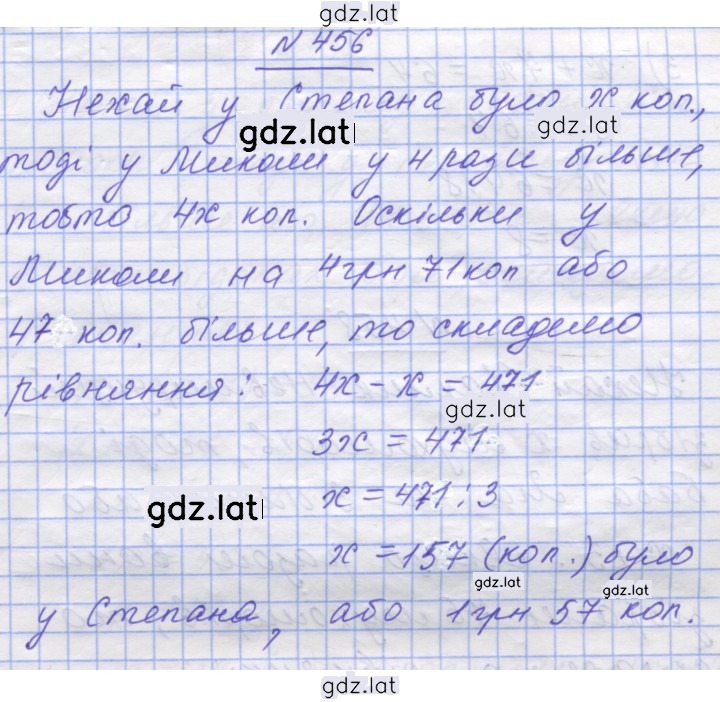 gdz.lat
№ 456
Нехай у Степана було x коп.,
gdz.lat gdz.lat
тоді у Миколи у 4 рази більше,
тобто 4x коп. Оскільки у
Миколи на 4 грн 71 коп або
47 коп. більше, то складемо
рівняння: 4x - x = 471
gdz.lat
3x = 471
x = 471 : 3
gdz.lat
x = 157 (коп.) було
gdz.lat gdz.lat
у Степана, або 1 грн 57 коп.
gdz.lat